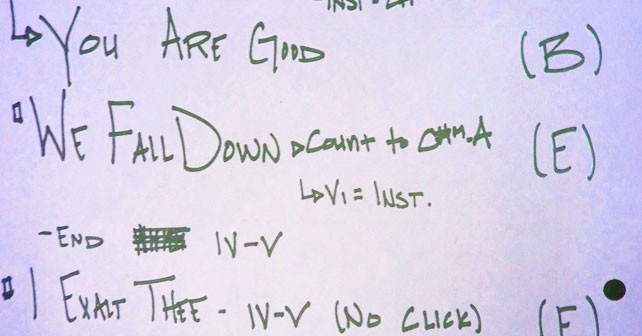 ↳ You Are Good (B)
We Fall Down ▹ Count to C#m.A (E)
↳ V1 = Inst.
- End IV-V
I Exalt Thee - IV-V (No Click)